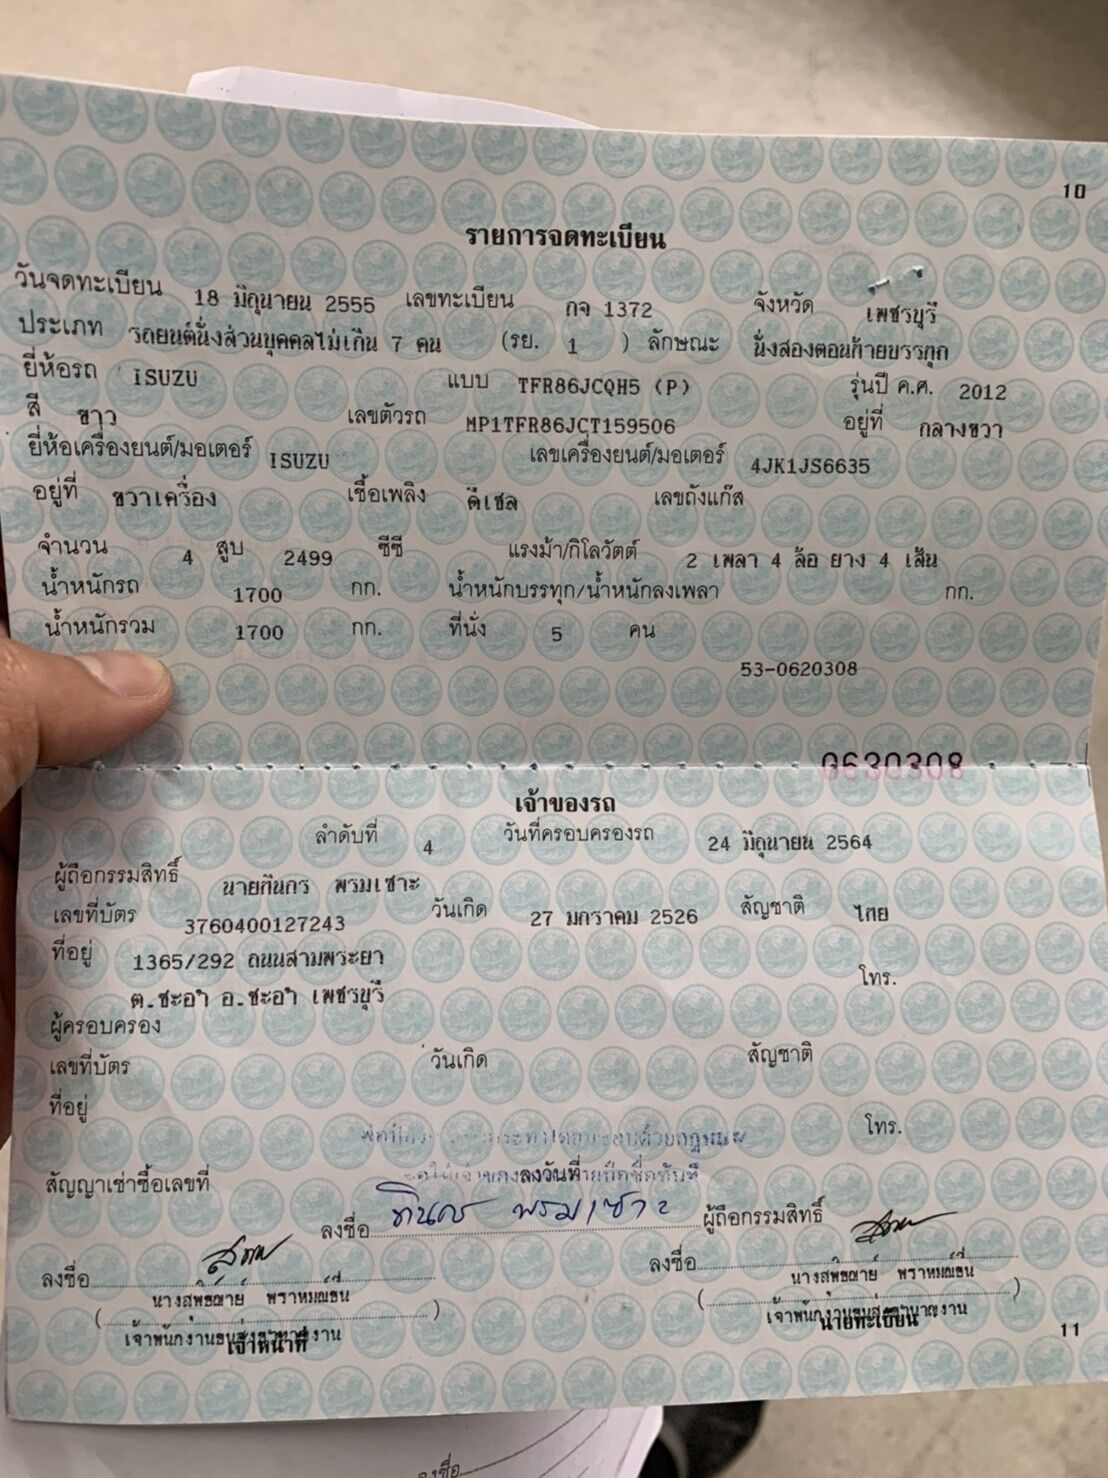 10
รายการจดทะเบียน
วันจดทะเบียน 18 มิถุนายน 2555 เลขทะเบียน กจ 1372 จังหวัด เพชรบุรี
ประเภท รถยนต์นั่งส่วนบุคคลไม่เกิน 7 คน (รย. 1 ) ลักษณะ นั่งสองตอนท้ายบรรทุก
ยี่ห้อรถ ISUZU แบบ TFR86JCQH5 (P) รุ่นปี ค.ศ. 2012
สี ขาว เลขตัวรถ MP1TFR86JCT159506 อยู่ที่ กลางขวา
ยี่ห้อเครื่องยนต์/มอเตอร์ ISUZU เลขเครื่องยนต์/มอเตอร์ 4JK1JS6635
อยู่ที่ ขวาเครื่อง เชื้อเพลิง ดีเซล เลขถังแก๊ส
จำนวน 4 สูบ 2499 ซีซี แรงม้า/กิโลวัตต์ 2 เพลา 4 ล้อ ยาง 4 เส้น
น้ำหนักรถ 1700 กก. น้ำหนักบรรทุก/น้ำหนักลงเพลา กก.
น้ำหนักรวม 1700 กก. ที่นั่ง 5 คน
53-0620308
0630308
เจ้าของรถ
ลำดับที่ 4 วันที่ครอบครองรถ 24 มิถุนายน 2564
ผู้ถือกรรมสิทธิ์ นายทินกร พรมเซาะ
เลขที่บัตร 3760400127243 วันเกิด 27 มกราคม 2526 สัญชาติ ไทย
ที่อยู่ 1365/292 ถนนสามพระยา
ต.ชะอำ อ.ชะอำ เพชรบุรี โทร.
ผู้ครอบครอง
เลขที่บัตร วันเกิด สัญชาติ
ที่อยู่
โทร.
สัญญาเช่าซื้อเลขที่ ลงวันที่
ลงชื่อ ทินกร พรมเซาะ ผู้ถือกรรมสิทธิ์
ลงชื่อ ลงชื่อ
เจ้าหน้าที่ นายทะเบียน
11
ลงชื่อ